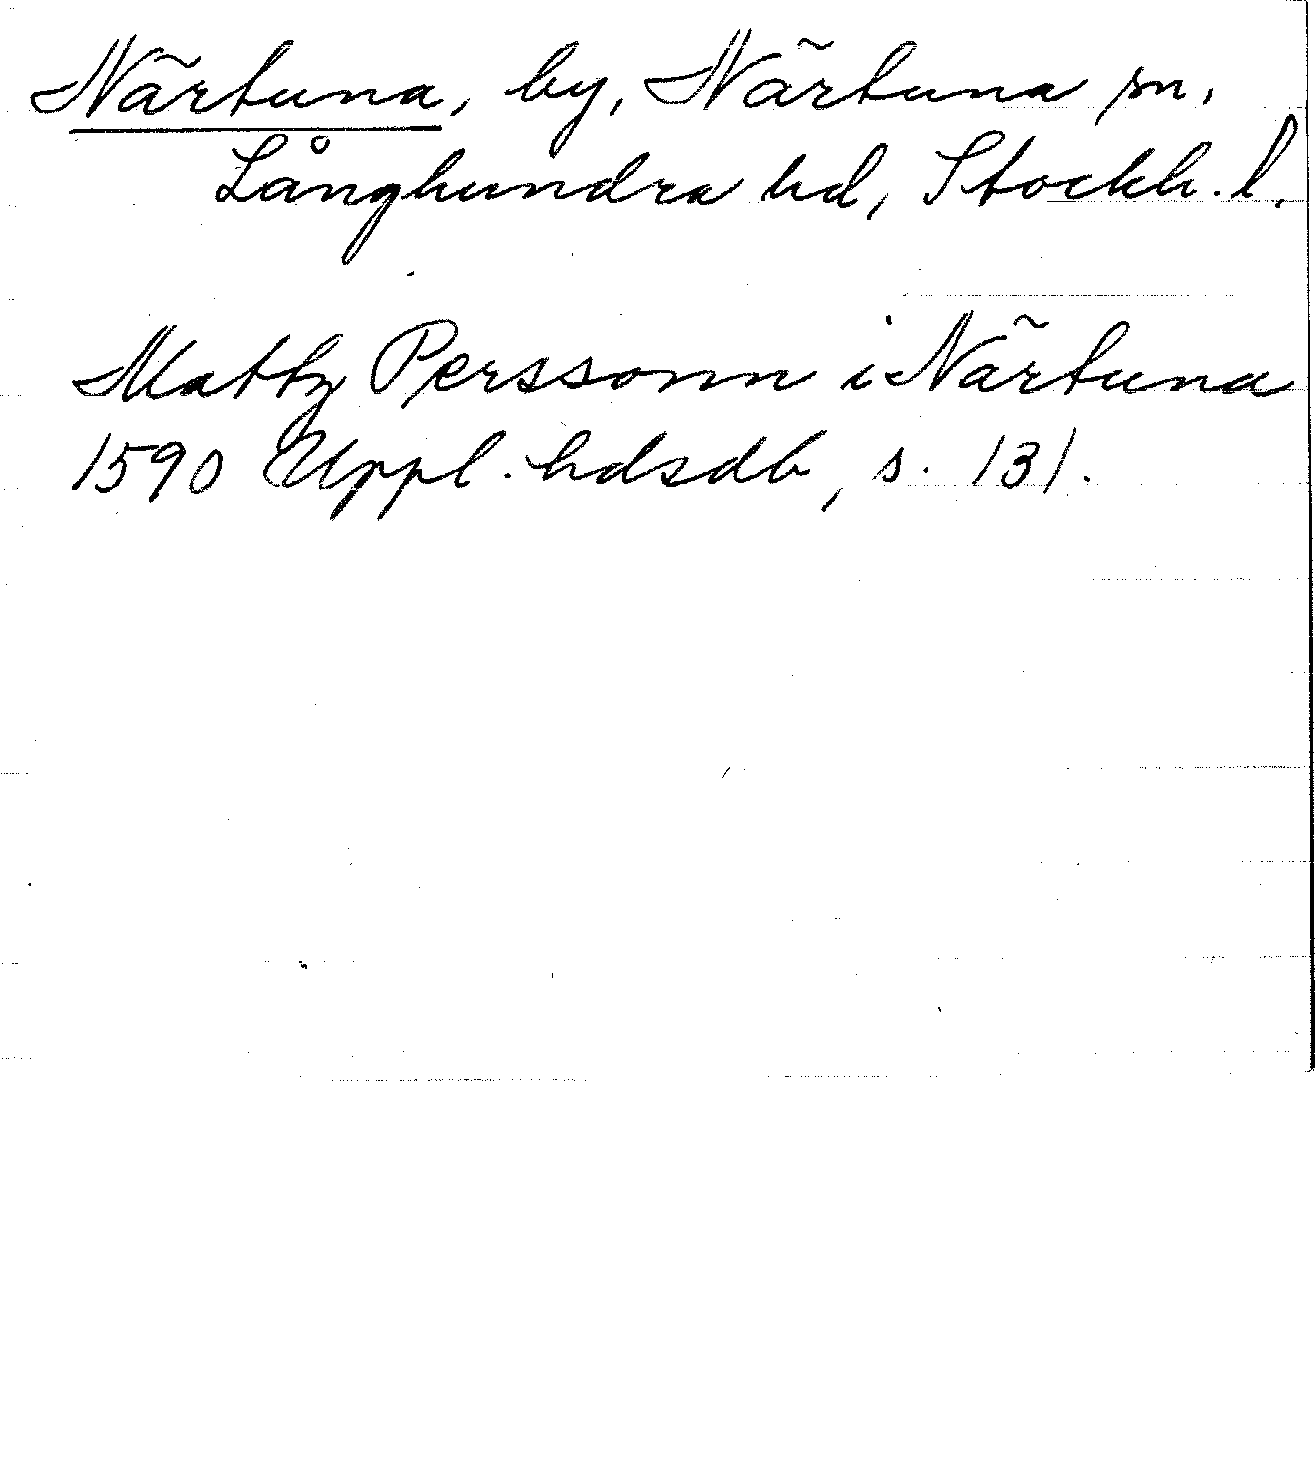 Närtuna, by, Närtuna sn,
Långhundra hd, Stockh. l.
Mattz Perssonn i Närtuna
1590 Uppl. hdsdb, s. 131.